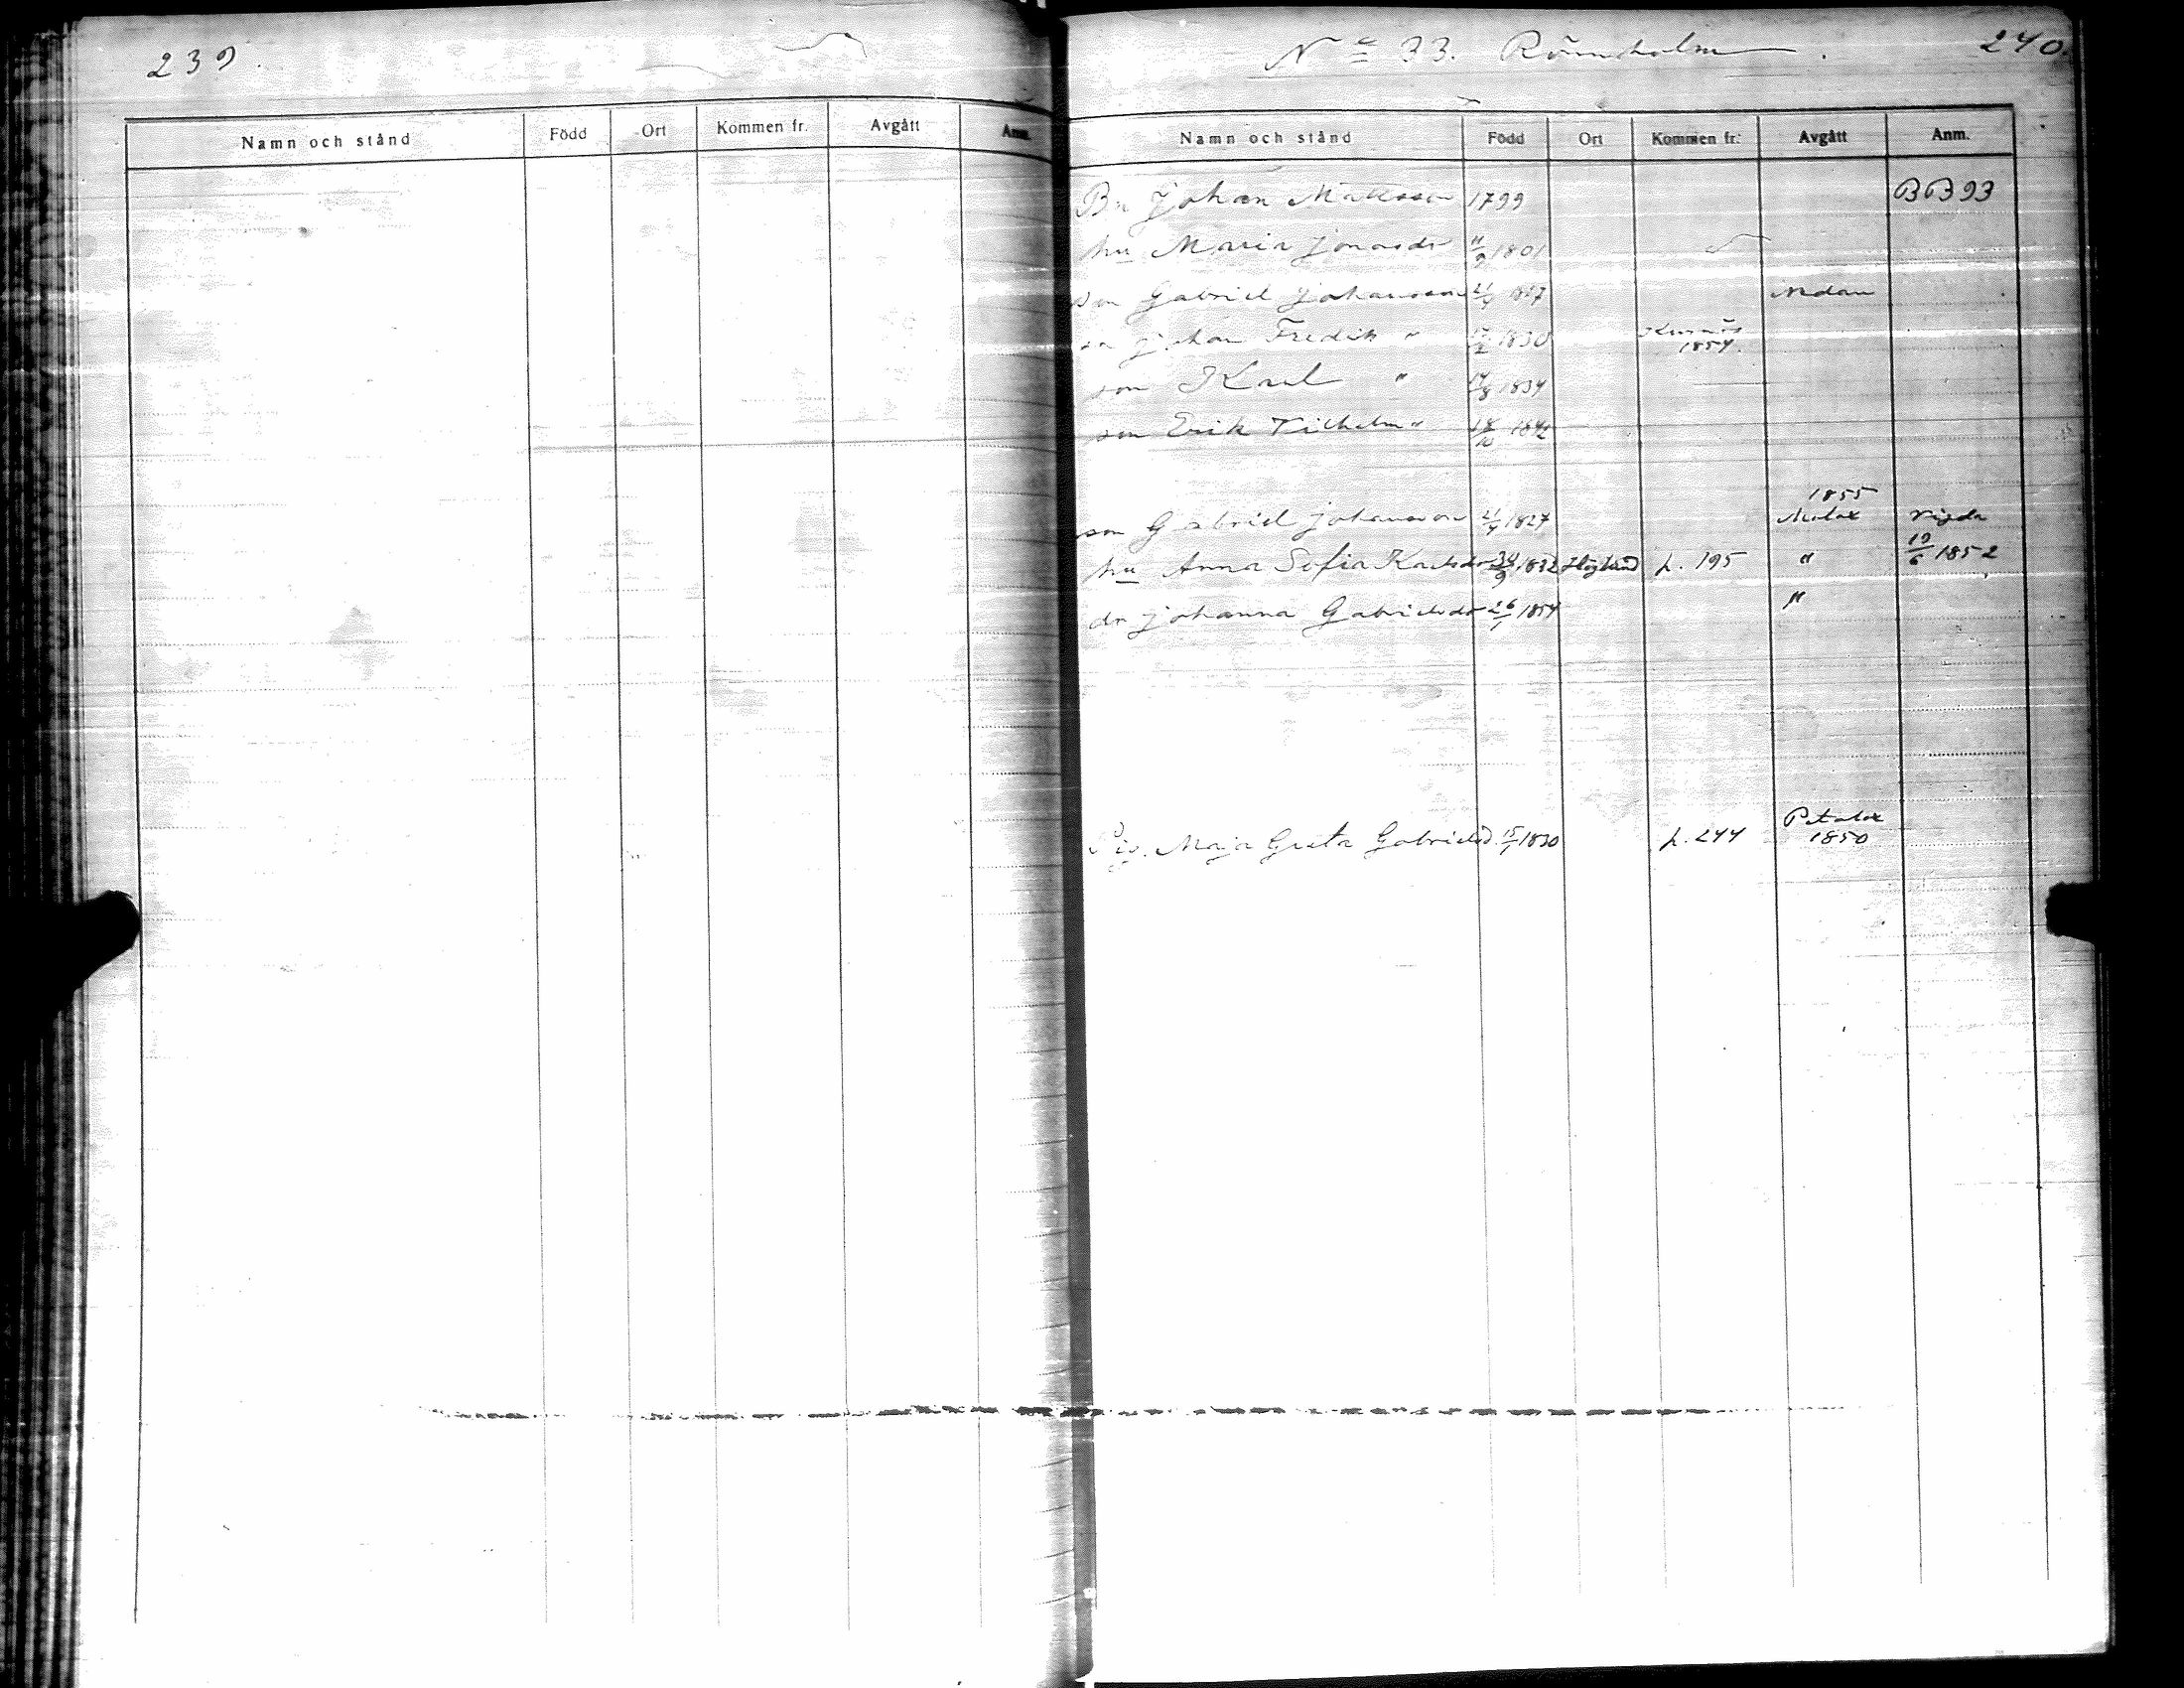 239.
Namn och stånd Född Ort Kommen fr. Avgått Anm.
No 33. Rönnholm. 240.
Namn och stånd Född Ort Kommen fr. Avgått Anm.
Bn Johan Mattsson 1799 BB 93
hu Maria Jonasdr 11/9 1801
son Gabriel Johansson 21/7 1827 Nedan
sn Johan Fredik " 1830
1854.
son Karl " 1834
son Erik Vilhelm " 18/10 1842
1855
son Gabriel Johansson 21/7 1827 Malax Vigda
hu Anna Sofia Karlsdr 1832 Höglund p. 195 " 19/6 1852
dr Johanna Gabrielsdr 26/1 1854 "
Petalax
Pig. Maja Greta Gabrielsd. 15/1 1830 p. 244 1850